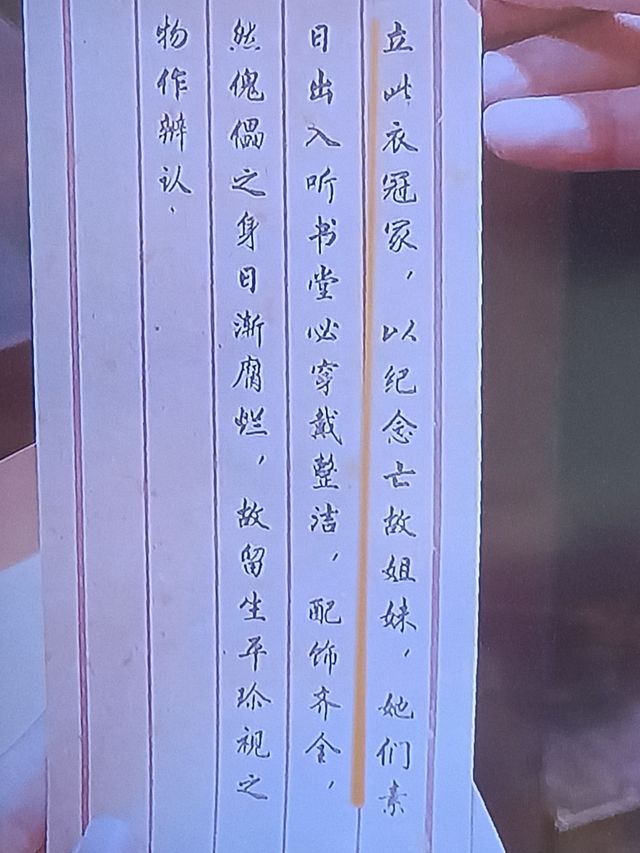 立此衣冠冢，以纪念亡故姐妹，她们素
日出入听书堂必穿戴整洁，配饰齐全，
然傀儡之身日渐腐烂，故留生平珍视之
物作辨认.